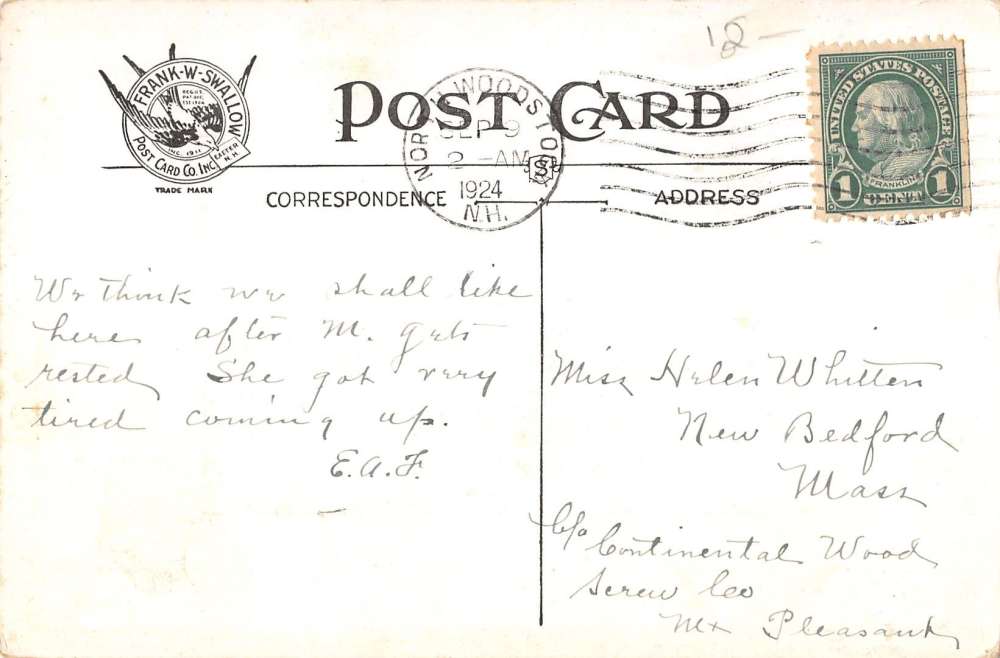 12 —
FRANK-W-SWALLOW
POST CARD CO. INC.
INC. 1911
EXETER
N.H.
TRADE MARK
POST CARD
NORTH WOODSTOCK
SEP 9
2 - AM
1924
N.H.
UNITED STATES POSTAGE
FRANKLIN
1 CENT 1
CORRESPONDENCE
ADDRESS
We think we shall like
here after M. gets
rested She got very
tired coming up.
E.A.F.
Miss Helen Whitten
New Bedford
Mass
c/o Continental Wood
Screw Co
Mt Pleasant